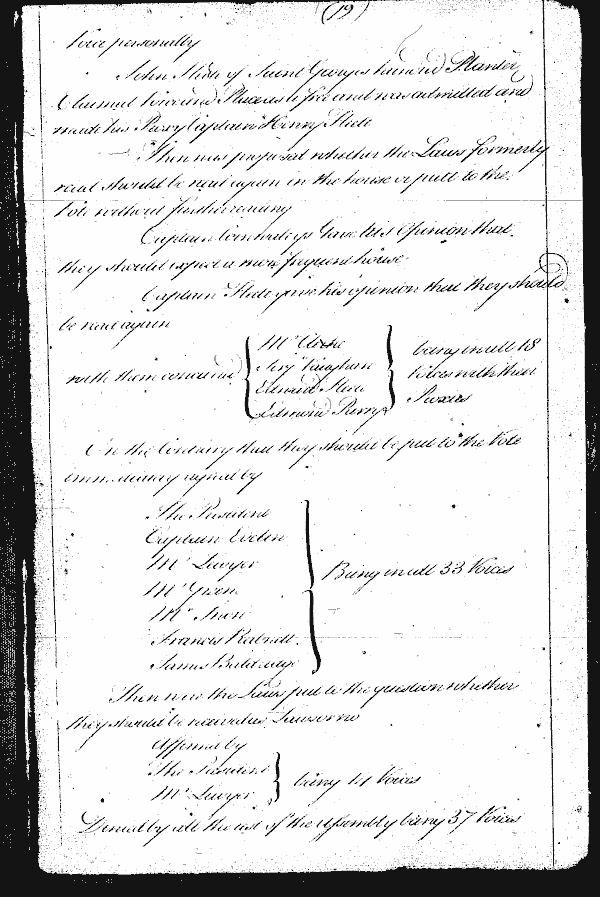 (19)
Voice personally
John of Saint Georges hundred Planter
Claimed Voice and and was admitted and
made his Proxy Captain Henry Fleete
Then was proposed whether the Laws formerly
read should be read again in the house or putt to the
Vote without further reading
Captain Cornwaleys Gave his Opinion that
they should expect a more frequent house
Captain Fleete gave his opinion that they should
be read again
with them concurred
Mr
Serj Vaughan
Edmond Parrys
being in all 18
Voices with their
Proxies
On the Contrary that they should be put to the Vote
immediately by
The President
Captain Evelin
Mr Lawyer
Mr Green
Mr Snow
Francis Rabnett
James Baldridge
Being in all 33 Voices
Then were the Laws put to the question whether
they should be received as Laws or no
Affirmed by
The President
Mr Lawyer
being 14 Voices
Denied by all the rest of the Assembly being 37 Voices